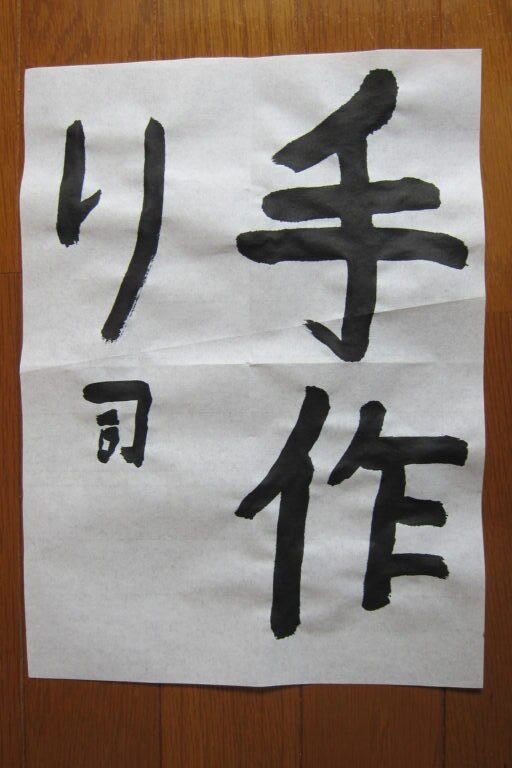 手作
り司